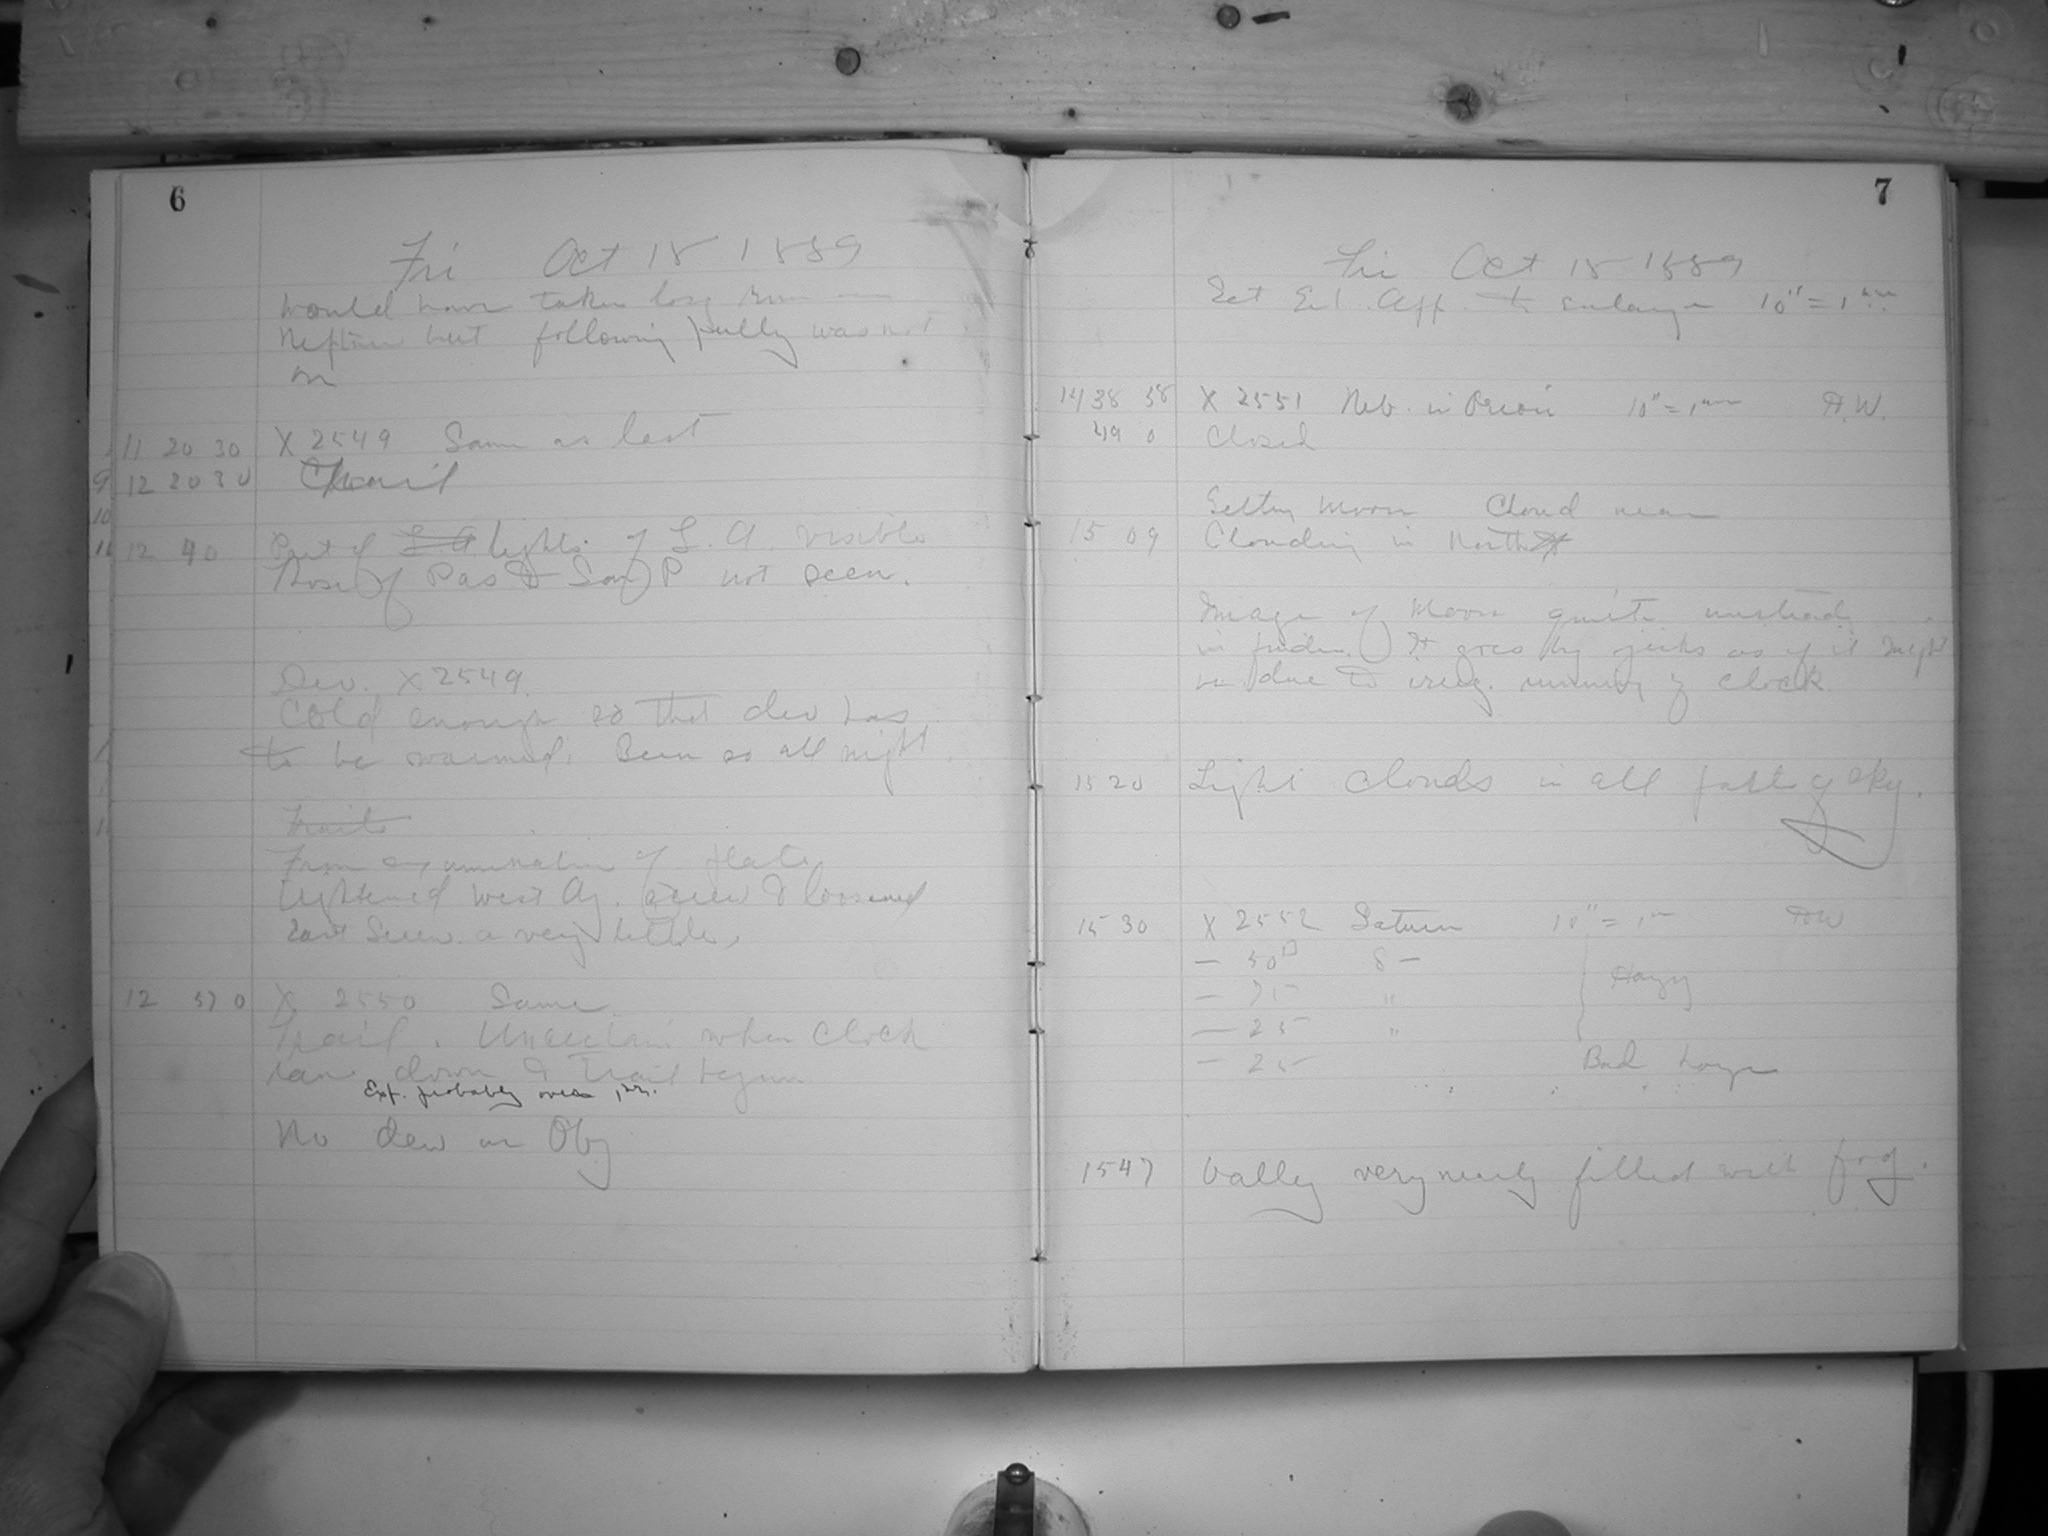 6
Fri Oct 18 1889
would have taken long run on
Neptune but following pully was not
on
11 20 30 X 2549 Same as last
12 20 30 Trail
12 40 Part of L A lights of L. A. visible
Those of Pas & San P not seen.
Dev. X 2549.
Cold enough so that dev has
to be warmed. Been so all night
Trails
From examination of plate
tightened west Az. screw & loosened
East Screw a very little.
12 57 0 X 2550 Same
Trail. Uncertain when clock
ran down & trail began
Exp. probably over
No dew on Obj
7
Fri Oct 18 1889
Set Enl. App. to enlarge 10" = 1 mm
14 38 58 X 2551 Neb. in Orion 10" = 1 mm A.W.
49 0 Closed
Setting Moon Cloud near
15 09 Clouding in North
Image of Moon quite unsteady
in finder. It goes by jerks as if it might
be due to irreg. running of clock
15 20 Light clouds in all parts of sky.
15 30 X 2552 Saturn 10" =
— 50 8 —
— 75 "
Hazy
— 25 "
— 25
Bad
15 47 Valley very nearly filled with fog.